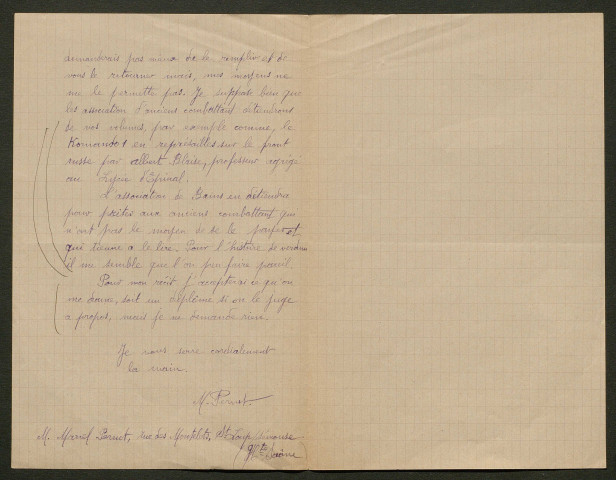 demanderais pas mieux de le remplir et de
vous le retourner mais, mes moyens ne
me le permette pas. Je suppose bien que
les association d'anciens combattant détiendrons
de vos volumes, par exemple comme, le
Komando 1 en représailles sur le front
russe par Albert Blaise, professeur agrégé
au Lycée d'Epinal.
L'association de Bains en détiendra
pour prêtes aux anciens combattant qui
n'ont pas le moyen de se le payer et
qui tienne a le lire. Pour l'histoire de verdun
il me semble que l'on peu faire pareil.
Pour mon récit j'accepterai ce qu'on
me donne, soit un diplôme si on le juge
a propos, mais je ne demande rien.
Je vous serre cordialement
la main.
M. Pernet
M. Marcel Pernet, rue des Montelots, St Loup s/Semouse
Hte Saône